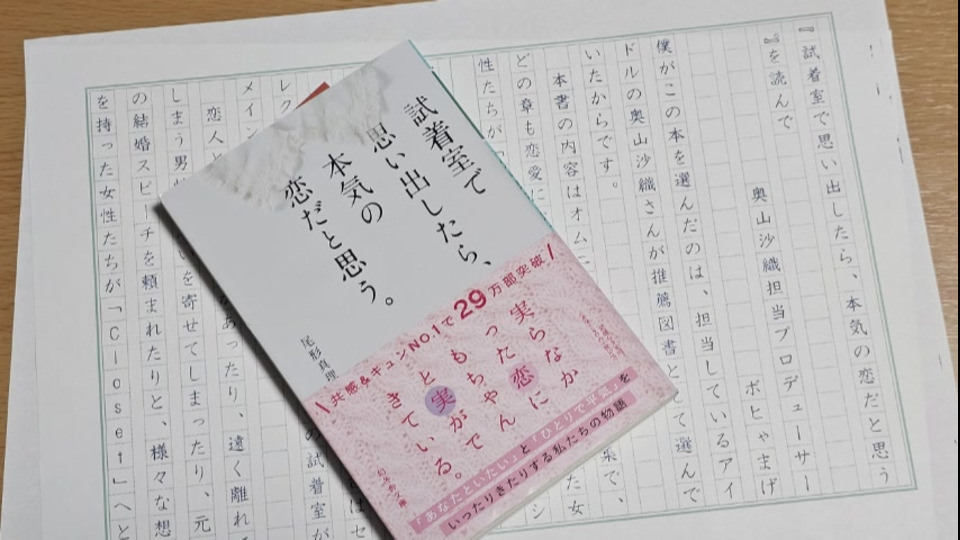 試着室で
思い出したら、
本気の
恋だと思う。
尾形真理
共感&キュンNO.1で29万部突破
実らなか
った恋に
もちゃん
と実がで
きている。
「あなたといたい」と「ひとりで平気」を
いったりきたりする私たちの物語
幻冬舎文庫
『試着室で思い出したら、本気の恋だと思う
』を読んで
奥山沙織担当プロデューサー
ボヒャまげ
僕がこの本を選んだのは、担当しているアイ
ドルの奥山沙織さんが推薦図書と
て選んで
いたからです。
本書の内容はオムニ
系で、
どの章も恋愛に
た女
性たちが
シ
レク
はセ
メイン
の試着室が
恋人と
あったり、遠く離れ
しまう男性
いを寄せてしまったり、元
の結婚スピーチを頼まれたりと、様々な想
を持った女性たちが「Closet」へと